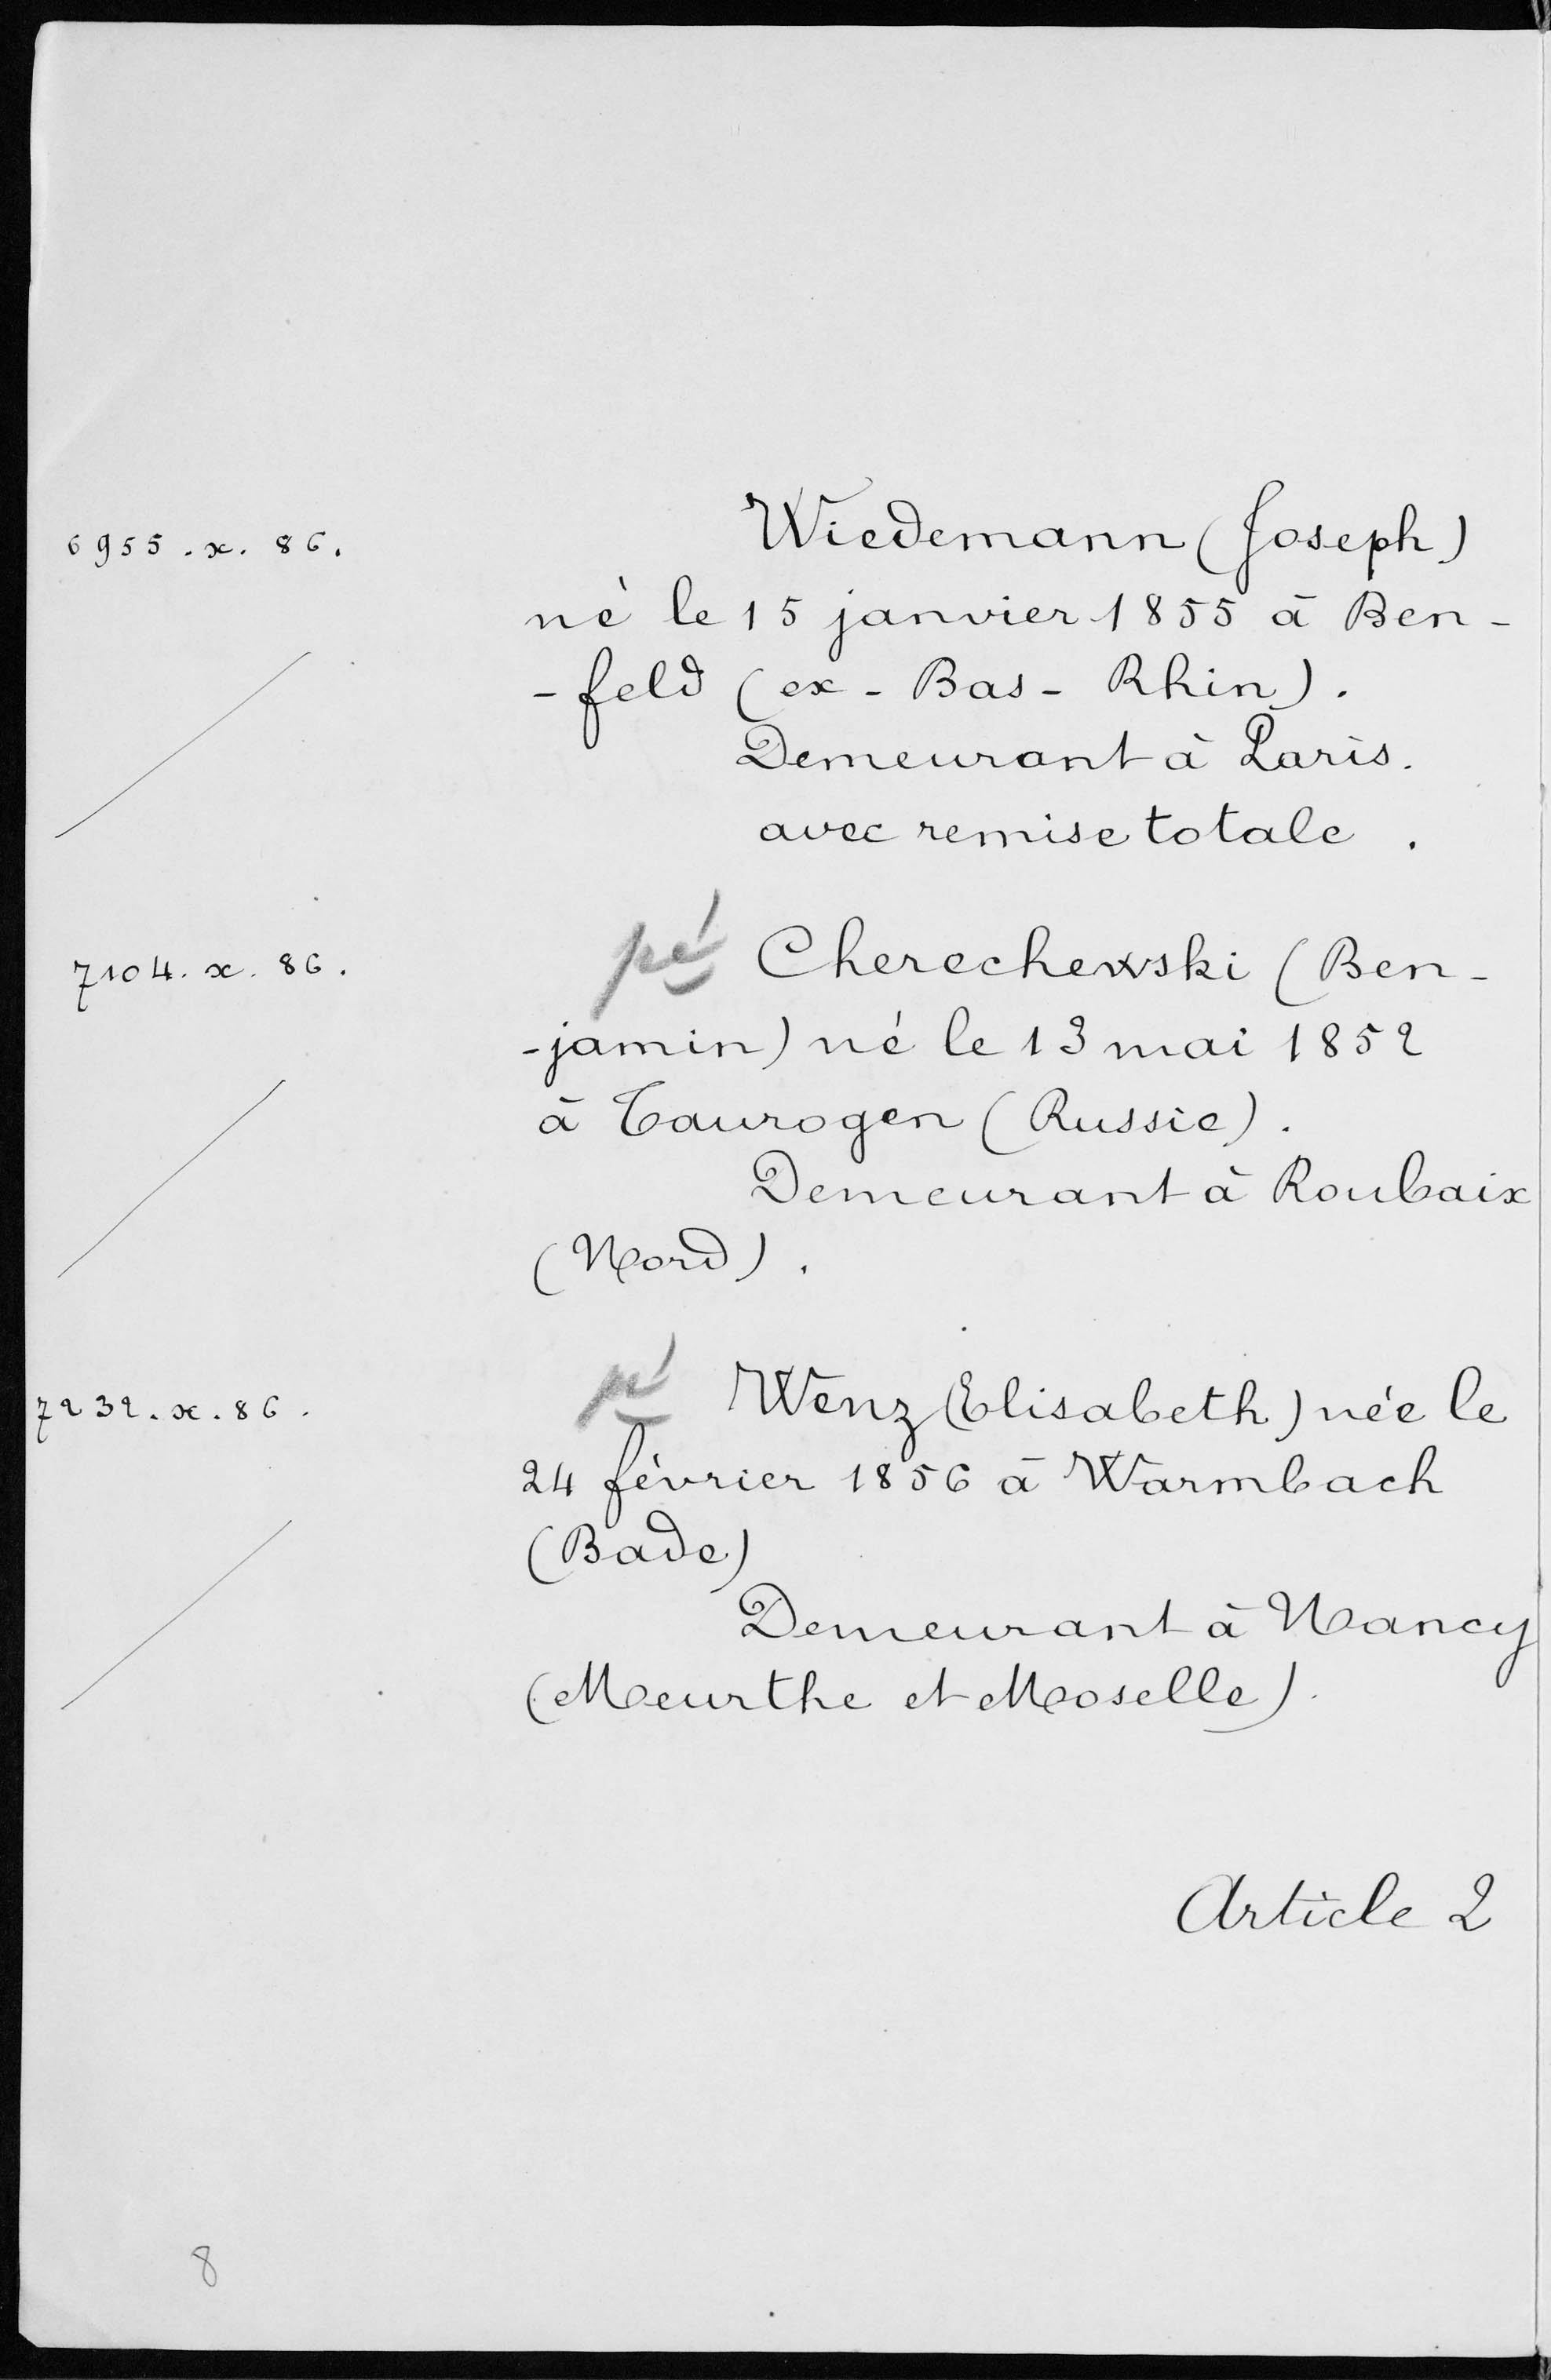 6955.x.86.
Wiedemann (Joseph)
né le 15 janvier 1855 à Ben-
-feld (ex-Bas-Rhin).
Demeurant à Paris.
avec remise totale.
7104.x.86.
pé Cherechewski (Ben-
-jamin) né le 13 mai 1852
à Taurogen (Russie).
Demeurant à Roubaix
(Nord).
7232.x.86.
pé Wenz (Elisabeth) née le
24 février 1856 à Warmbach
(Bade)
Demeurant à Nancy
(Meurthe et Moselle).
Article 2
8